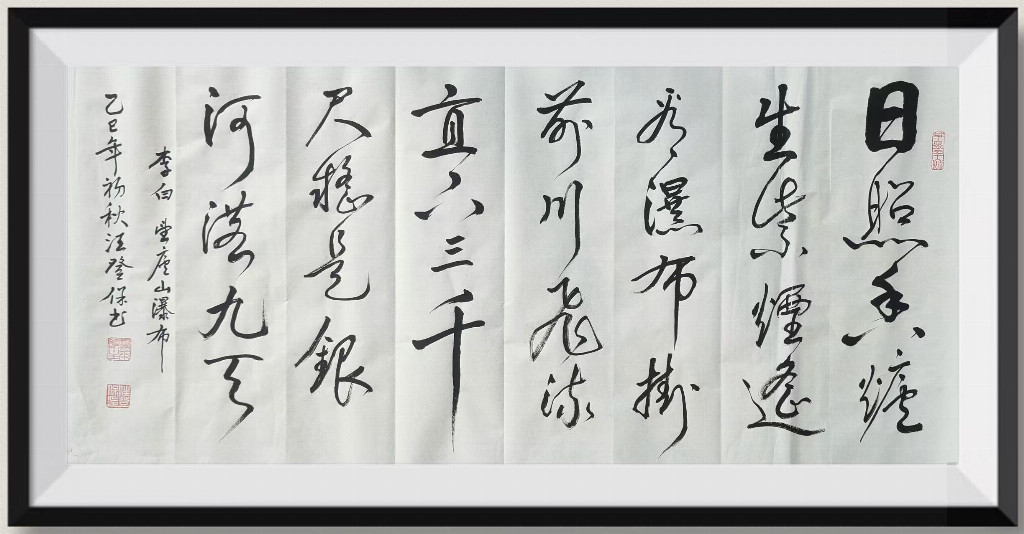 日照香爐
生紫煙遙
看瀑布掛
前川飛流
直下三千
尺疑是銀
河落九天
李白 望廬山瀑布
乙巳年初秋汪登保书